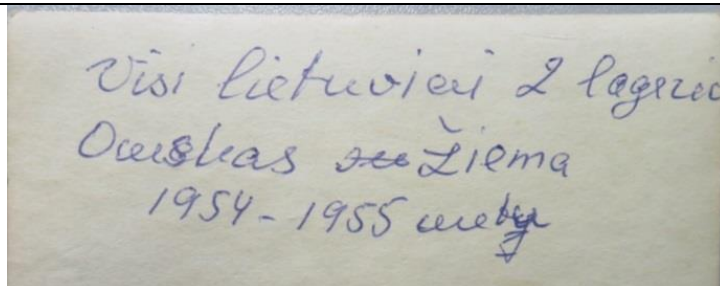 Visi lietuviai 2 lagerio
Omskas Žiema
1954-1955 metų